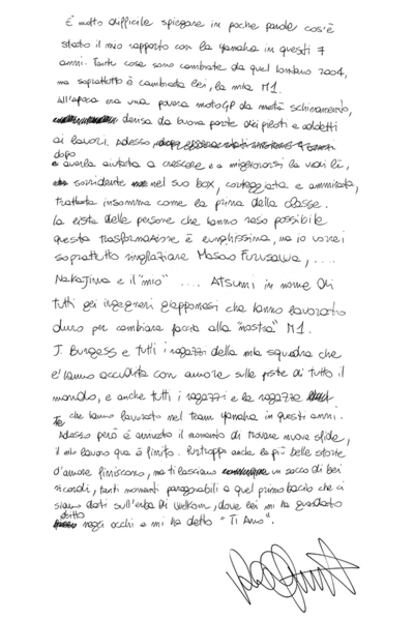 È molto difficile spiegare in poche parole cos'è
stato il mio rapporto con la Yamaha in questi 7
anni. Tante cose sono cambiate da quel lontano 2004,
ma soprattutto è cambiata lei, la mia M1.
All'epoca era una povera motoGP da metà schieramento,
derisa da buona parte dei piloti e addetti
ai lavori. Adesso,
dopo averla aiutata a crescere e a migliorarsi la vedi lì,
sorridente nel suo box, corteggiata e ammirata,
trattata insomma come la prima della classe.
La lista delle persone che hanno reso possibile
questa trasformazione è lunghissima, ma io vorrei
soprattutto ringraziare Masao Furusawa, ....
Nakajima e il "mio" .... Atsumi in nome di
tutti gli ingegneri giapponesi che hanno lavorato
duro per cambiare faccia alla "nostra" M1.
J. Burgess e tutti i ragazzi della mia squadra che
l'hanno accudita con amore sulle piste di tutto il
mondo, e anche tutti i ragazzi e le ragazze
che hanno lavorato nel team Yamaha in questi anni.
Adesso però è arrivato il momento di trovare nuove sfide,
il mio lavoro qua è finito. Purtroppo anche le più belle storie
d'amore finiscono, ma ti lasciano un sacco di bei
ricordi, tanti momenti paragonabili a quel primo bacio che ci
siamo dati sull'erba di Welkom, dove lei mi ha guardato
dritto negli occhi e mi ha detto "Ti Amo".